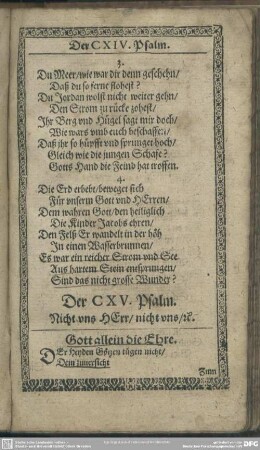 Der CXIV. Psalm.
3.
Du Meer/ wie war dir denn geschehn/
Daß du so ferne flohest?
Du Jordan wolst nicht weiter gehn/
Den Strom zu rücke zohest/
Ihr Berg vnd Hügel sagt mir doch/
Wie wars vmb euch beschaffen/
Daß ihr so hüpfft vnd sprunget hoch/
Gleich wie die jungen Schafe?
Gotts Hand die Feind hat troffen.
4.
Die Erd erbebt/ beweget sich
Für vnserm Gott vnd HErren/
Dem wahren Gott/ den heiliglich
Die Kinder Jacobs ehren/
Den Felß Er wandelt in der höh
In einen Wasserbrunnen/
Es war ein reicher Strom vnd See
Aus hartem Stein entsprungen/
Sind das nicht grosse Wunder?
Der CXV. Psalm.
Nicht vns HErr/ nicht vns/ ꝛc.
Gott allein die Ehre.
DEr Heyden Götzen tügen nicht/
Dein zuversicht
Zum